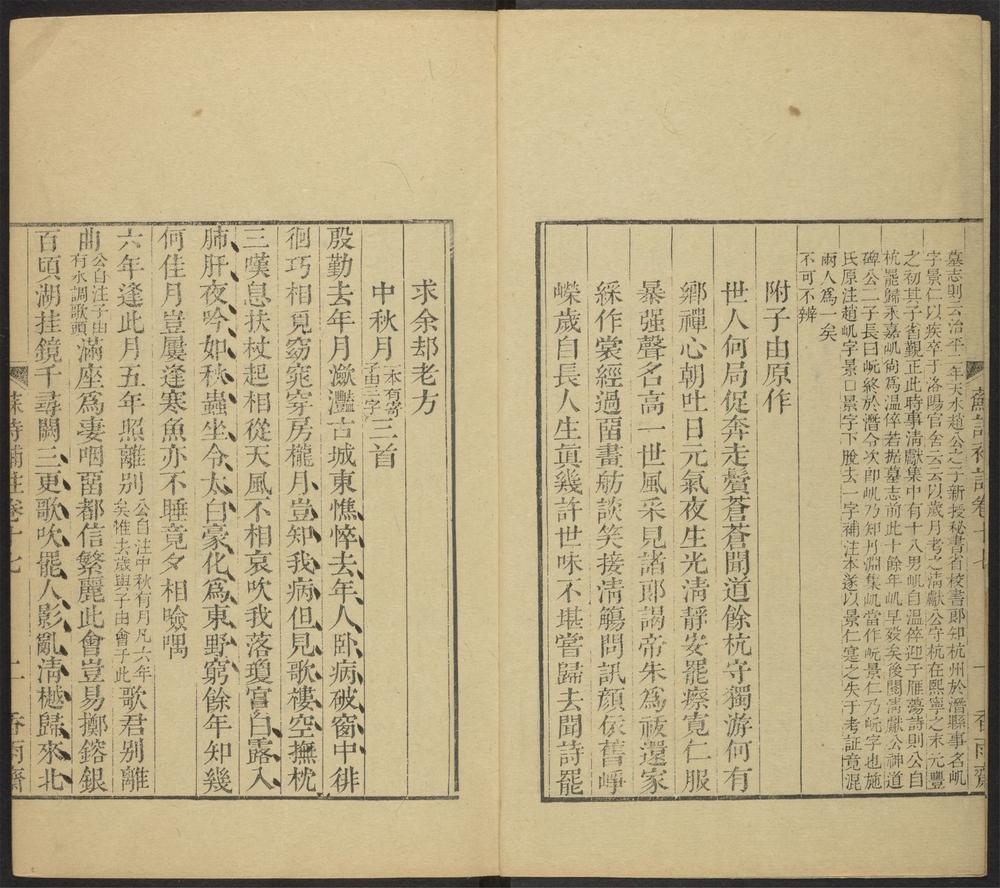 墓志則云治平二年天水趙公之子新授秘書省校書郎知杭州於潛縣事名㞦
字景仁以疾卒于洛陽官舍云云以歲月考之清獻公守杭在熙寧之末元豐
之初其子省覲正此時事清獻集中有十八男㞦自溫倅迎于雁蕩詩則公自
杭罷歸永嘉㞦尚為溫倅若據墓志前此十餘年㞦早歿矣後閱清獻公神道
碑公二子長曰岏終於潛令次即㞦乃知丹淵集㞦當作岏景仁乃岏字也施
氏原注趙㞦字景口景字下脫去一字補注本遂以景仁寔之失于考証竟混
兩人爲一矣
不可不辨
附子由原作
世人何局促奔走鬢蒼蒼聞道餘杭守獨游何有
鄉禪心朝吐日元氣夜生光淸靜安罷瘵寬仁服
暴强聲名高一世風采見諸郎謁帝朱爲祓還家
綵作裳經過畱畫舫談笑接淸觴問訊顏依舊崢
嶸歲自長人生眞幾許世味不堪嘗歸去聞詩罷
蘇詩補註卷十七
一
香雨齋
求余却老方
中秋月一本有寄子由三字三首
殷勤去年月瀲灩古城東憔悴去年人卧病破窗中徘
徊巧相覓窈窕穿房櫳月豈知我病但見歌樓空撫枕
三嘆息扶杖起相從天風不相哀吹我落瓊宮白露入
肺肝夜吟如秋蟲坐令太白豪化爲東野窮餘年知幾
何佳月豈屢逢寒魚亦不睡竟夕相噞喁
六年逢此月五年照離别公自注中秋有月凡六年矣惟去歲與子由會于此歌君别離
曲公自注子由有水調歌頭滿座爲凄咽畱都信繁麗此會豈易擲鎔銀
百頃湖挂鏡千尋闕三更歌吹罷人影亂淸樾歸來北
蘇詩補註卷十七
二
香雨齋